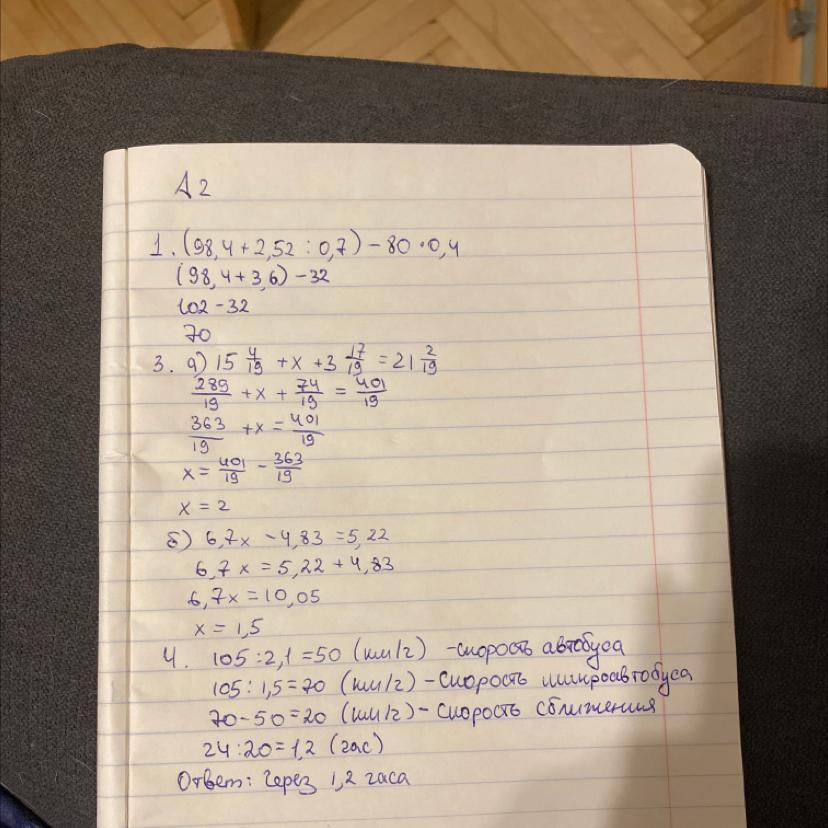 А2
1. (98,4 + 2,52 : 0,7) - 80 · 0,4
(98,4 + 3,6) - 32
102 - 32
70
3. а) 15 4/19 + x + 3 17/19 = 21 2/19
289/19 + x + 74/19 = 401/19
363/19 + x = 401/19
x = 401/19 - 363/19
x = 2
б) 6,7x - 4,83 = 5,22
6,7x = 5,22 + 4,83
6,7x = 10,05
x = 1,5
4. 105 : 2,1 = 50 (км/ч) - скорость автобуса
105 : 1,5 = 70 (км/ч) - Скорость микроавтобуса
70 - 50 = 20 (км/ч) - Скорость сближения
24 : 20 = 1,2 (час)
Ответ: Через 1,2 часа